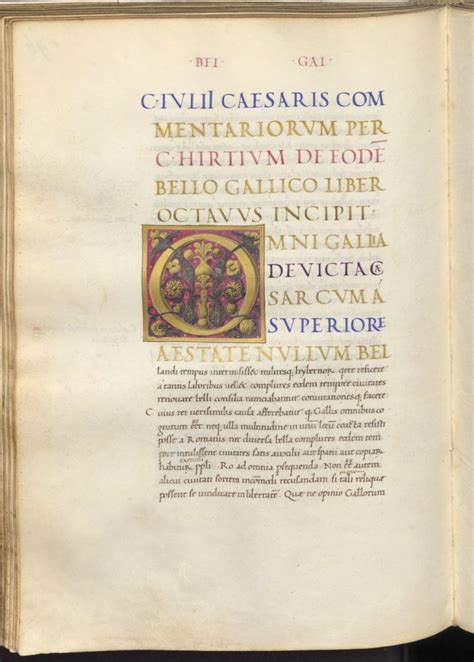 ·BEL· ·GAL·
C·IVLII CAESARIS COM
MENTARIORVM PER
C·HIRTIVM DE EODĒ
BELLO GALLICO LIBER
OCTAVVS INCIPIT·
OMNI GALLIA
DEVICTA CÆ
SAR CVM Á
SVPERIORE
AESTATE NVLLVM BEL
landi tempus intermisisset militesq; hybernor quete reficere
a tantis laboribus vellet complures eodem tempore civitates
renovare belli consilia nunciabantur coniurationesq; facere
Cuius rei verisimilis causa afferebatur q Gallis omnibus co
gnitum eēt neq ulla multitudine in unū locū coacta resisti
posse a Romanis nec diversa bella complures eodem tem
pore intulissent civitates satis auxilii aut spatii aut copiar
habitur ppli. Ro. ad omnia psequenda. Non eēt autem
alicui civitati sortem incōmodi recusandam si tali reliquæ
possent se vindicare in libertatē. Quæ ne opinio Gallorum